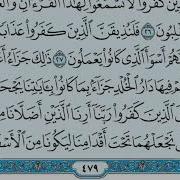 كَفَرُوا۟ لَا تَسْمَعُوا۟ لِهَٰذَا ٱلْقُرْءَانِ وَٱلْ
٢٦ فَلَنُذِيقَنَّ ٱلَّذِينَ كَفَرُوا۟ عَذَابًا
هُمْ أَسْوَأَ ٱلَّذِى كَانُوا۟ يَعْمَلُونَ ٢٧ ذَٰلِكَ جَزَآءُ أَعْ
فِيهَا دَارُ ٱلْخُلْدِ جَزَآءًۢ بِمَا كَانُوا۟ بِـَٔايَٰتِنَا يَجْحَ
ٱلَّذِينَ كَفَرُوا۟ رَبَّنَآ أَرِنَا ٱلَّذَيْنِ أَضَلَّانَا مِنَ
نَجْعَلْهُمَا تَحْتَ أَقْدَامِنَا لِيَكُونَا مِنَ ٱلْأَسْفَ
٤٧٩